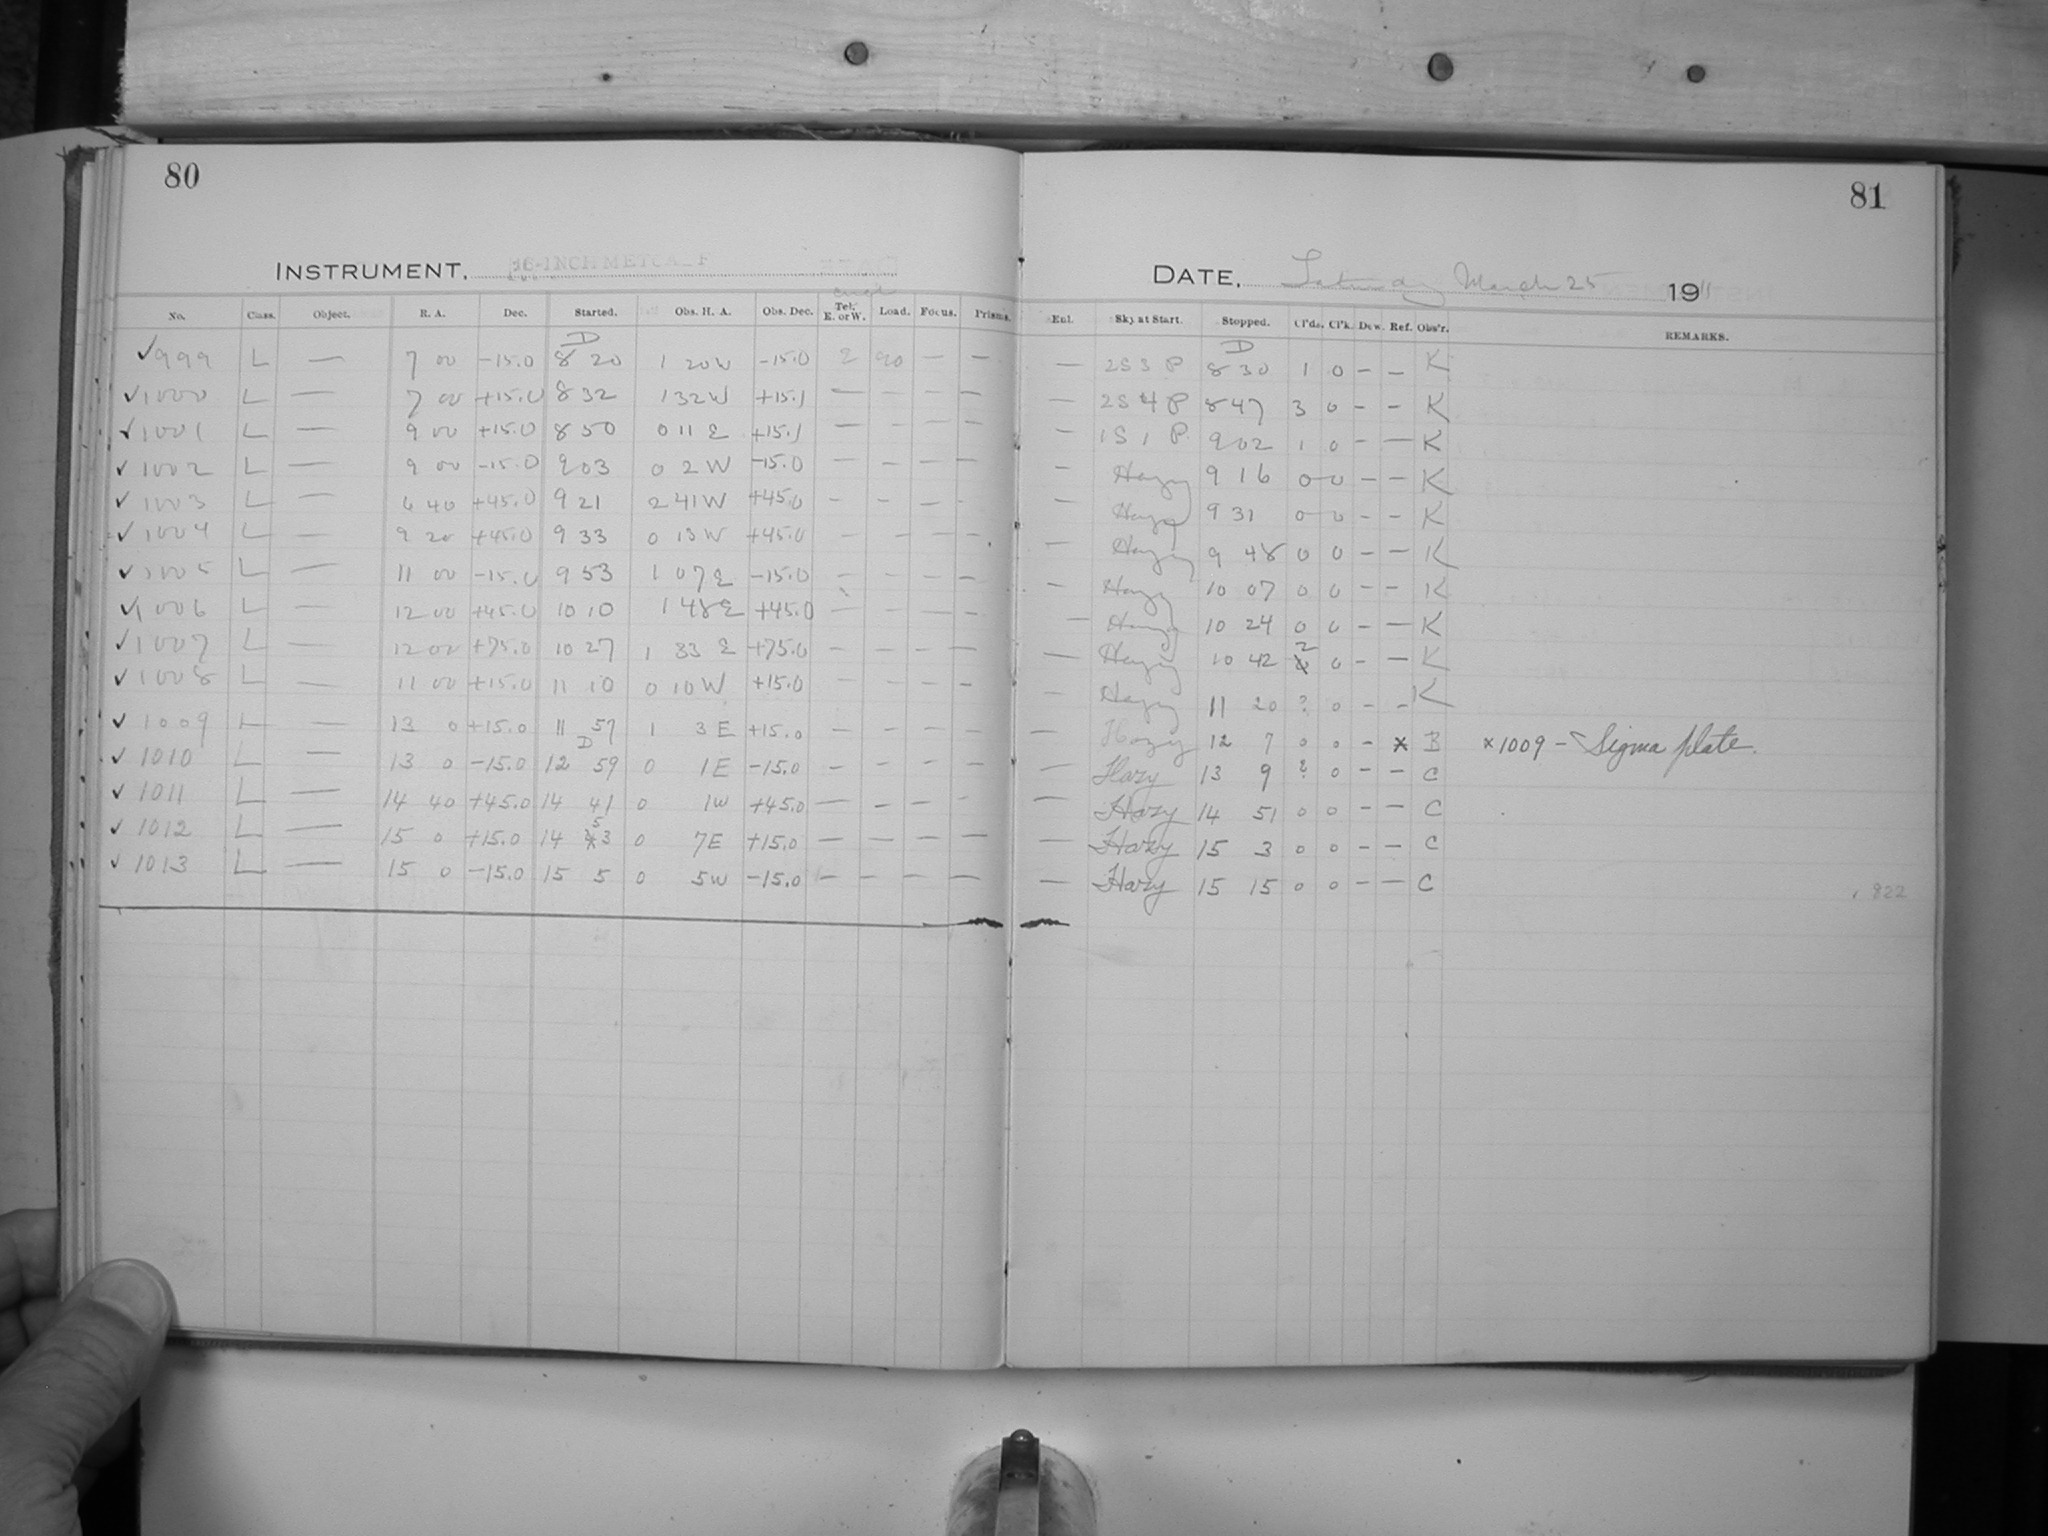 80
81
INSTRUMENT, 16-INCH METCALF
DATE, Saturday March 25 1911
No. Class. Object. R. A. Dec. Started. Obs. H. A. Obs. Dec. Tel. E. or W. Load. Focus. Prisms. Eul. Sky at Start. Stopped. Cl'ds. Cl'k. Dew. Ref. Obs'r. REMARKS.
D D
✓999 L — 7 00 -15.0 8 20 1 20W -15.0 E 90 — — — 2S3P 8 30 1 0 - - K
✓1000 L — 7 00 +15.0 8 32 1 32W +15.1 — — — — — 2S4P 8 47 3 0 - - K
✓1001 L — 9 00 +15.0 8 50 0 11 E +15.1 — — — — — 1S1P. 9 02 1 0 - - K
✓1002 L — 9 00 -15.0 9 03 0 2W -15.0 — — — — — Hazy 9 16 0 0 - - K
✓1003 L — 6 40 +45.0 9 21 2 41W +45.0 — — — — — Hazy 9 31 0 0 - - K
✓1004 L — 9 20 +45.0 9 33 0 13W +45.0 — — — — — Hazy 9 48 0 0 - - K
✓1005 L — 11 00 -15.0 9 53 1 07E -15.0 — — — — — Hazy 10 07 0 0 - - K
✓1006 L — 12 00 +45.0 10 10 1 48E +45.0 — — — — — Hazy 10 24 0 0 - - K
✓1007 L — 12 00 +75.0 10 27 1 33 E +75.0 — — — — — Hazy 10 42 2 0 - - K
✓1008 L — 11 00 +15.0 11 10 0 10W +15.0 — — — — — Hazy 11 20 ? 0 - - K
✓1009 L — 13 0 +15.0 11 57 1 3E +15.0 — — — — — Hazy 12 7 0 0 - x B x1009 - Sigma plate.
D
✓1010 L — 13 0 -15.0 12 59 0 1E -15.0 — — — — — Hazy 13 9 ? 0 - - C
✓1011 L — 14 40 +45.0 14 41 0 1W +45.0 — — — — — Hazy 14 51 0 0 - - C
✓1012 L — 15 0 +15.0 14 53 0 7E +15.0 — — — — — Hazy 15 3 0 0 - - C
✓1013 L — 15 0 -15.0 15 5 0 5W -15.0 — — — — — Hazy 15 15 0 0 - - C
822